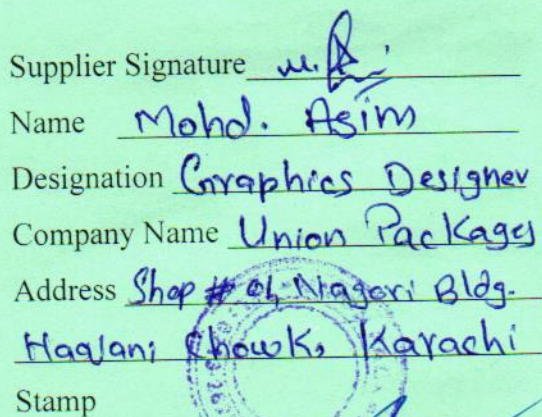 Supplier Signature
Name Mohd. Asim
Designation Graphics Designer
Company Name Union Packages
Address Shop # 01, Nagori Bldg.
Haqani Chowk, Karachi
Stamp